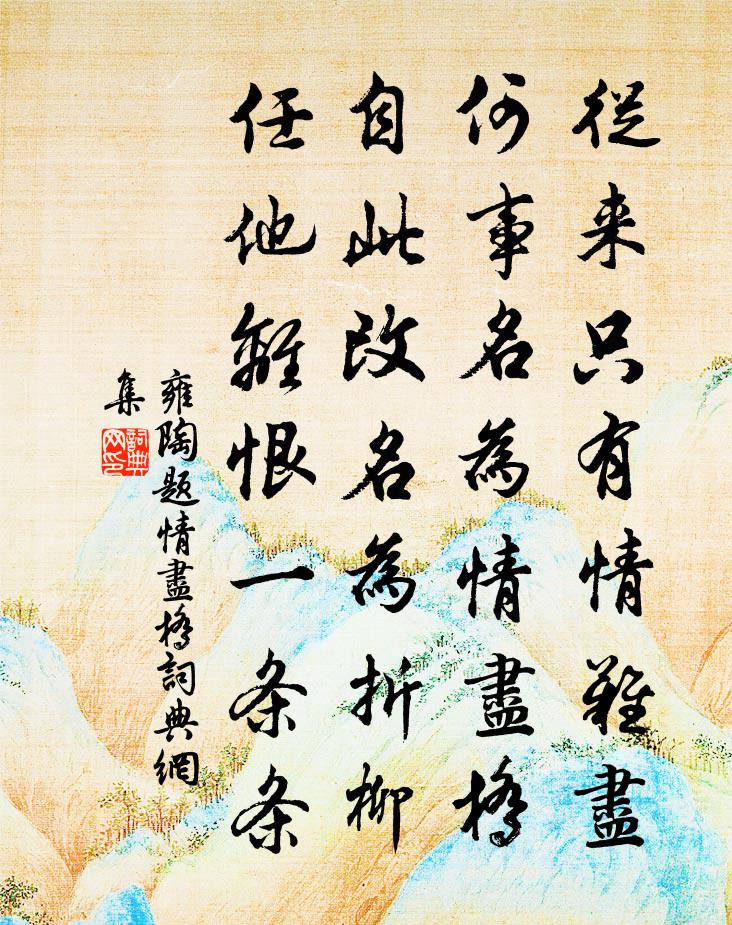 從来只有情難盡
何事名為情盡橋
自此改名為折柳
任他離恨一条条
雍陶題情盡橋詞典網
集
詞典
网印